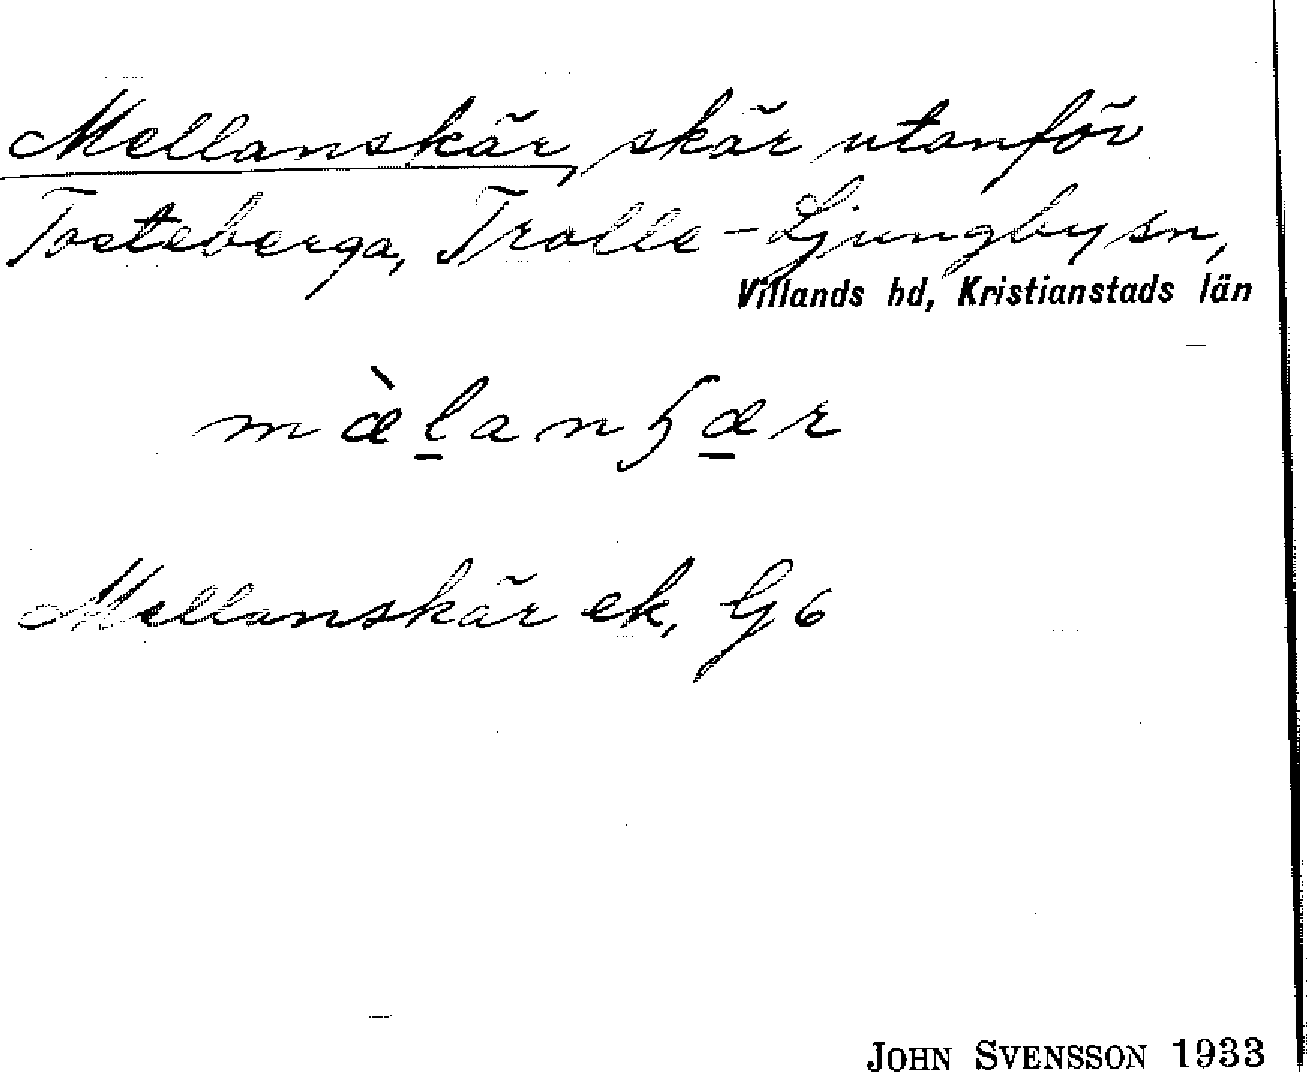 Mellanskär, skär utanför
Tosteberga, Trolle-Ljungby sn,
Villands hd, Kristianstads län
mæ̀l̠anɧæ̠r
Mellanskär ek, G 6
JOHN SVENSSON 1933